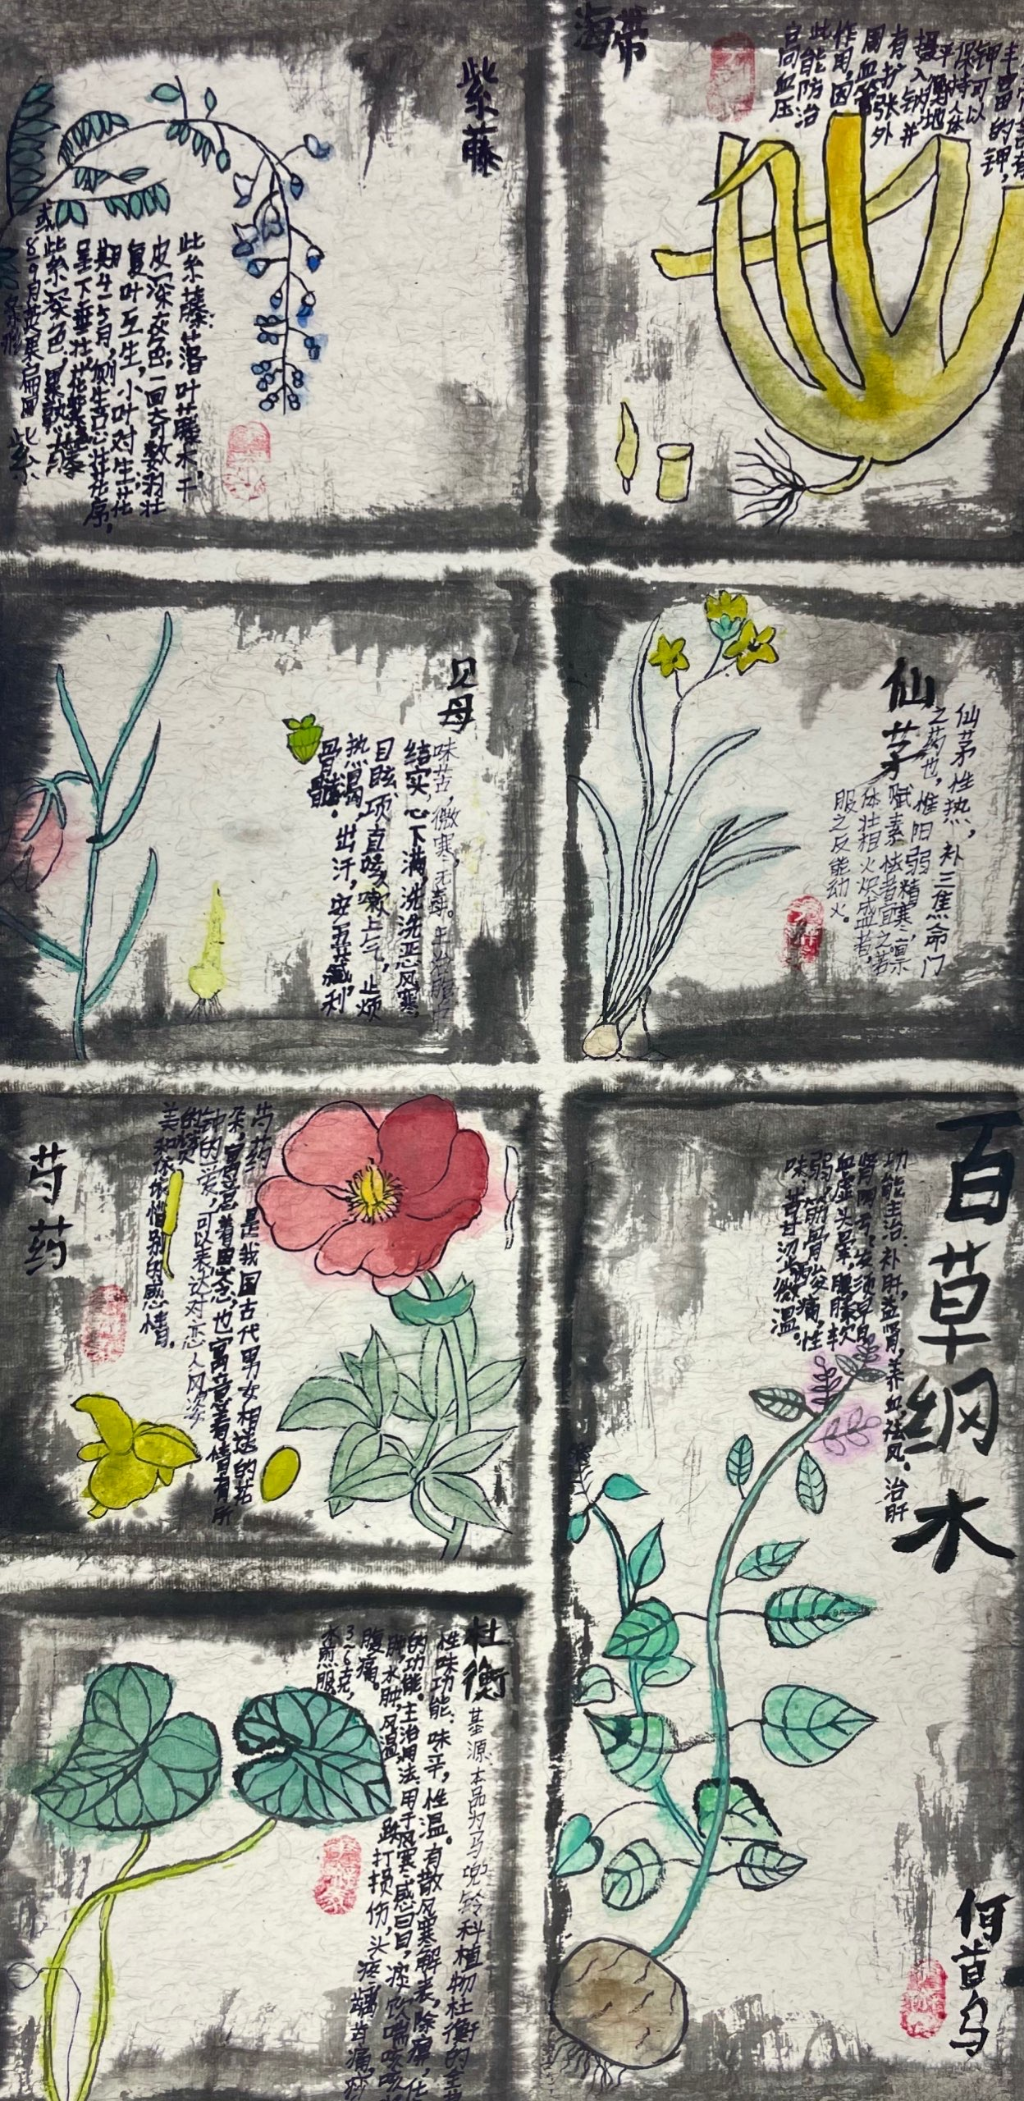 紫藤
此紫藤落叶藤木,干
皮深灰色一回奇数羽状
复叶互生,小叶对生花
期4-5月,侧生总状花序,
呈下垂状花
此紫深色果
海带
丰富的钾,
钾可以
保持人体
平衡地
摄入钠并
有扩张外
周血管
作用,因
此能防治
高血压
贝母
味苦,微寒,无毒。主
结实,心下满,洗洗恶风寒,
目眩、项直,咳嗽上气,止烦
热渴,出汗,安五藏利
骨髓。
仙茅
仙茅性热,补三焦命门
之药也,惟阳弱精寒,禀
赋素怯者宜之若
体壮相火炽盛者,
服之反能幼火。
芍药
芍药 是我国古代男女相送的花
朵,寓意着思念,也寓意着情有所
钟的爱可以表达对恋人风姿
的
美和依依惜别的感情。
百草纲木
功能主治:补肝益肾,养血祛风。治肝
肾阴亏,发须早白,
血虚头晕,腰膝软
弱,筋骨酸痛,性
味:苦甘涩微温。
何首乌
杜衡
基源:本品为马兜铃科植物杜衡的全草
性味功能:味辛,性温。有散风寒解表,除
的功能。主治用法:用于风寒感冒,痰饮喘咳
肿,水肿,风湿,跌打损伤,头疼,龋齿痛,痧
腹痛。
3~6克,
水煎服